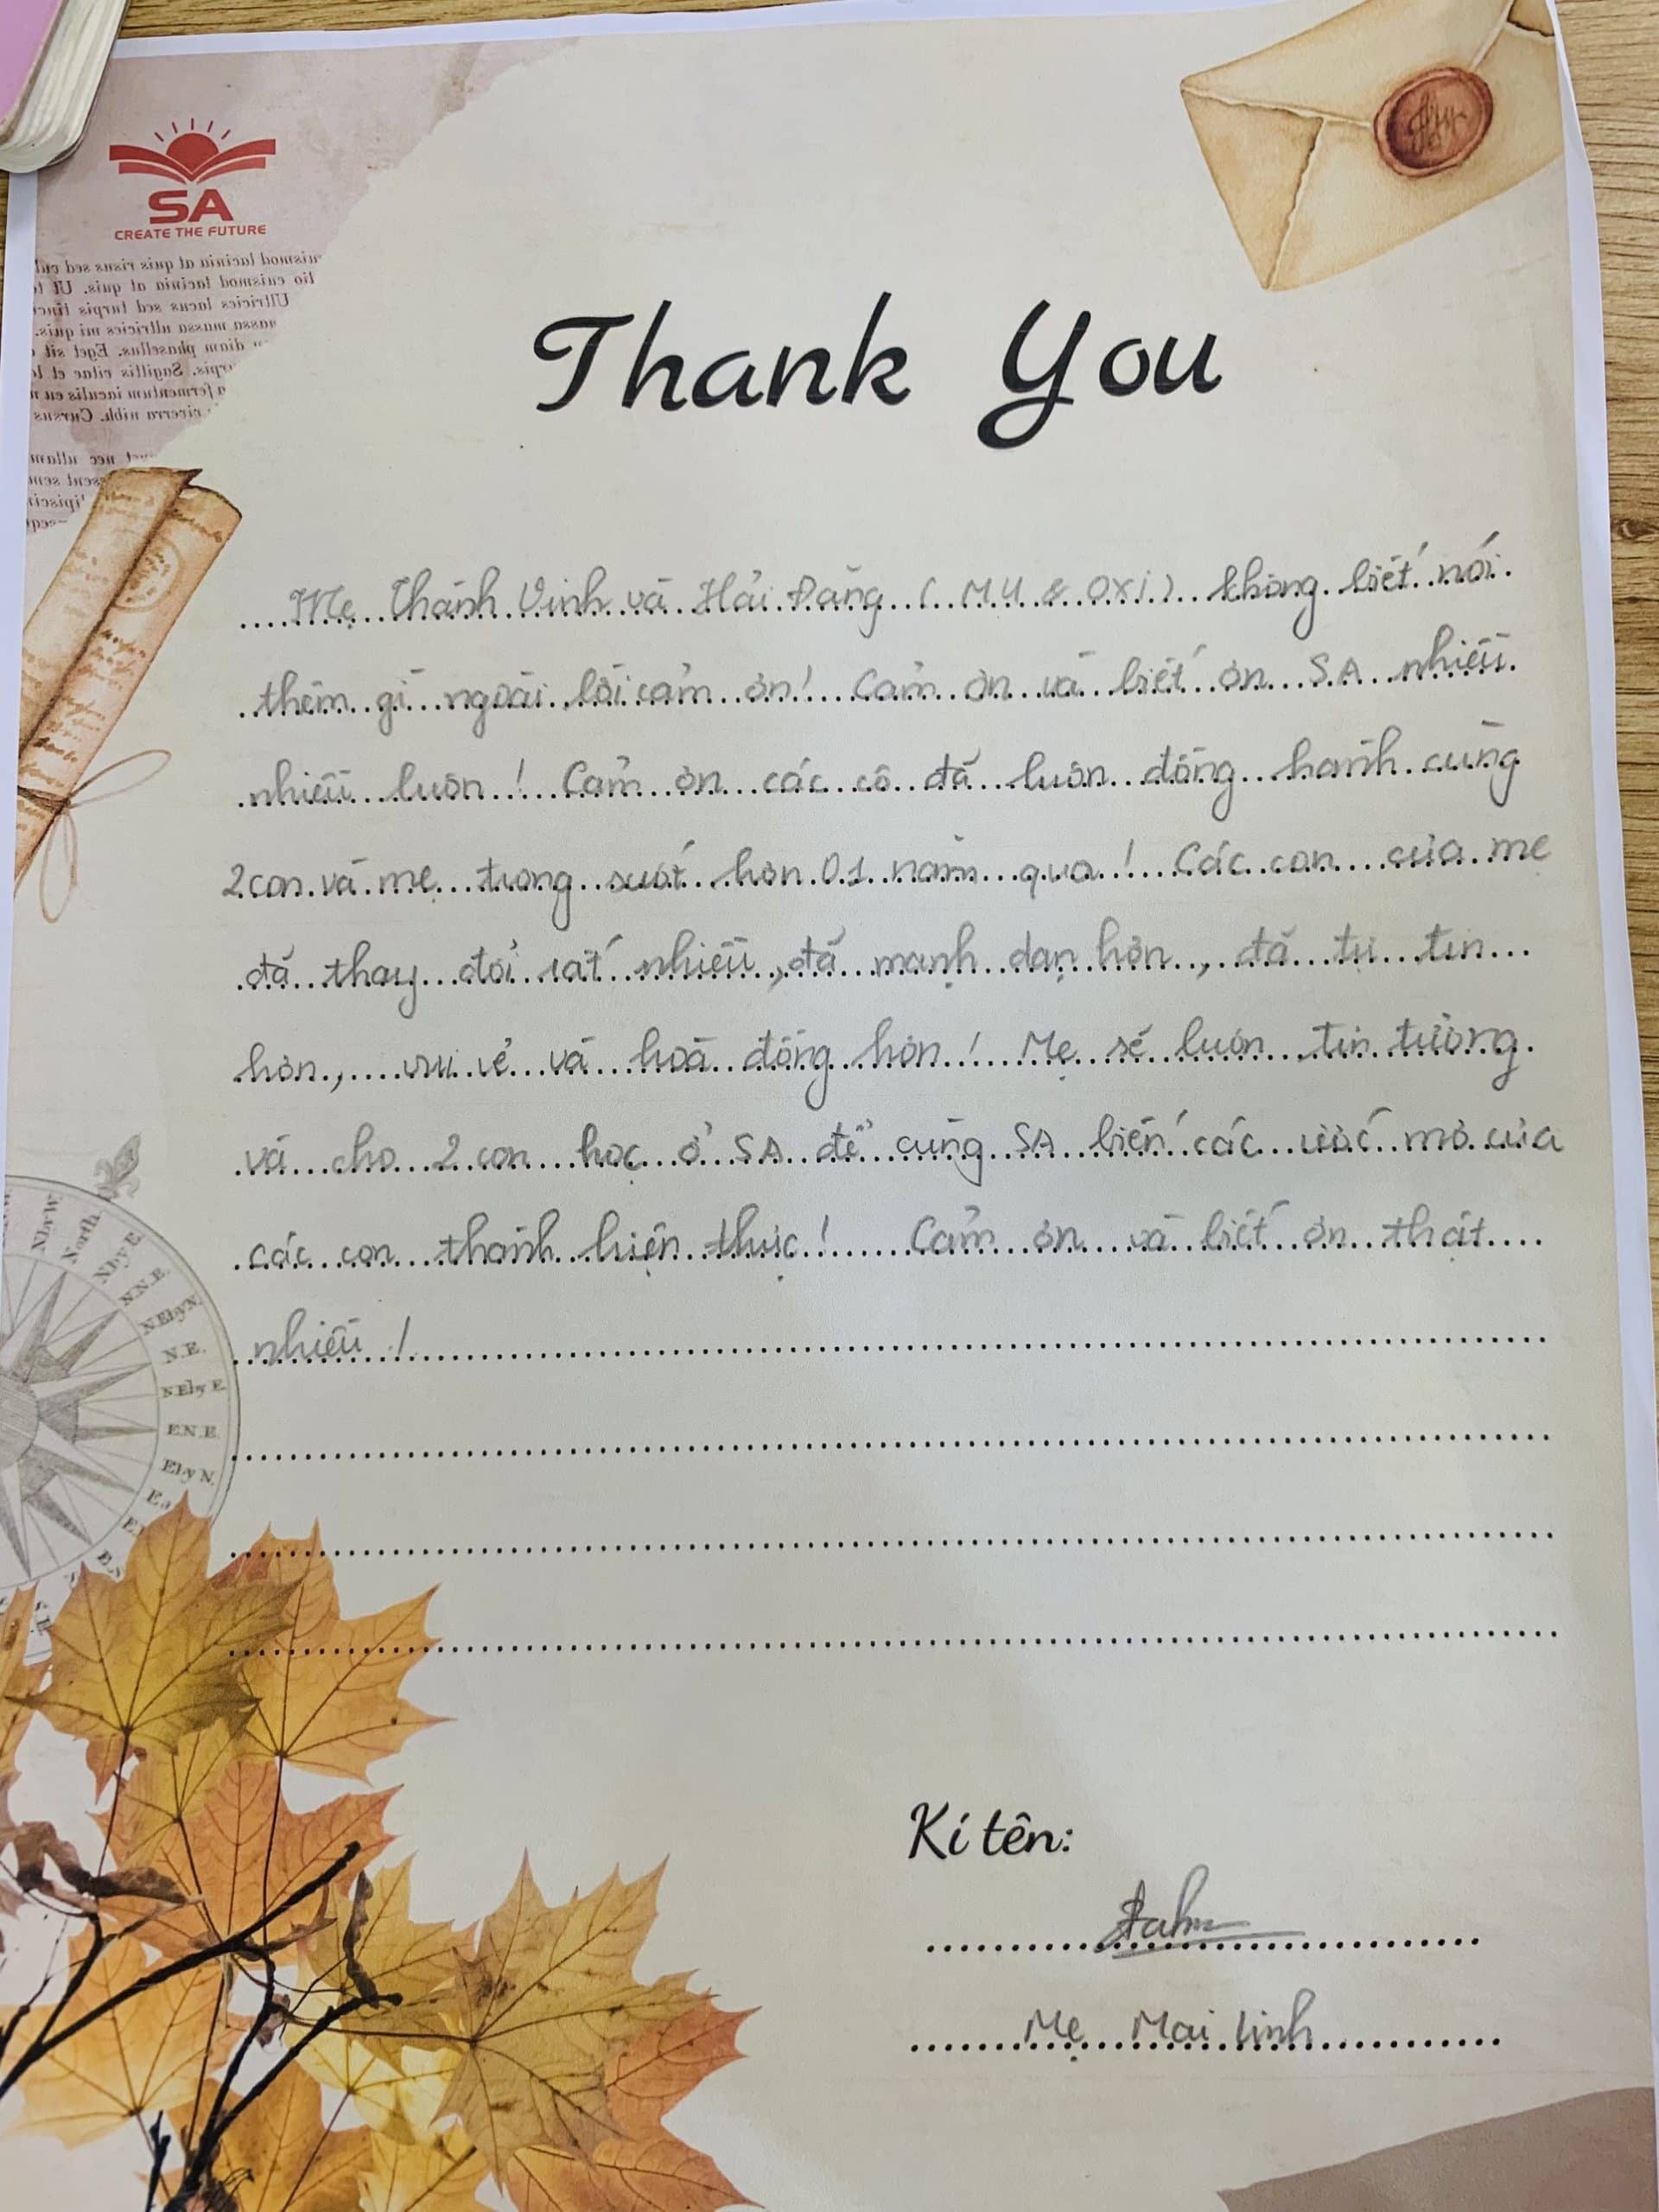 SA
CREATE THE FUTURE
Thank You
Mẹ Thành Vinh và Hải Đăng ( MY & OXI ) không biết nói
thêm gì ngoài lời cảm ơn! Cảm ơn và biết ơn SA nhiều
nhiều luôn ! Cảm ơn các cô đã luôn đồng hành cùng
2 con và mẹ trong suốt hơn 01 năm qua ! Các con của mẹ
đã thay đổi rất nhiều, đã mạnh dạn hơn, đã tự tin
hơn, vui vẻ và hoà đồng hơn ! Mẹ sẽ luôn tin tưởng
và cho 2 con học ở SA để cùng SA biến các ước mơ của
các con thành hiện thực ! Cảm ơn và biết ơn thật
nhiều !
N.N.E.
N.E.
N.Eby E.
E.N.E.
Eby N.
Kí tên:
Mẹ Mai Linh